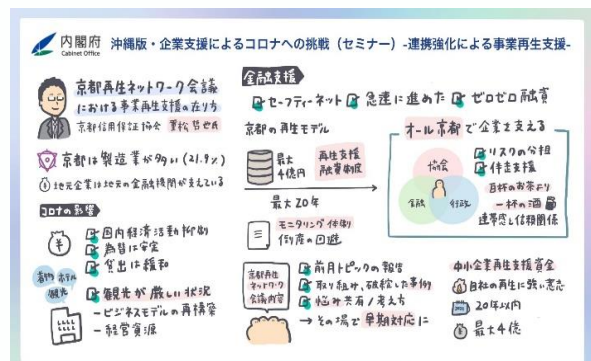 内閣府
Cabinet Office
沖縄版・企業支援によるコロナへの挑戦（セミナー）-連携強化による事業再生支援-
京都再生ネットワーク会議
における事業再生支援の在り方
京都信用保証協会
京都は製造業が多い(21.9%)
地元企業は地元の金融機関が支えている
コロナの影響
国内経済活動抑制
為替は安定
貸出は緩和
着物 ホテル
観光
観光が厳しい状況
-ビジネスモデルの再構築
-経営資源
金融支援
セーフティーネット 急速に進めた ゼロゼロ融資
京都の再生モデル
最大
4億円
再生支援
融資制度
最大20年
モニタリング体制
倒産の回避
オール京都で企業を支える
協会
金融
行政
リスクの分担
伴走支援
百杯のお茶より
一杯の酒
連帯感と信頼関係
京都再生
ネットワーク
会議内容
前月トピックの報告
取り組み、破綻した事例
悩み共有/考え方
→その場で早期対応に
中小企業再生支援資金
自社の再生に強い意志
20年以内
最大4億